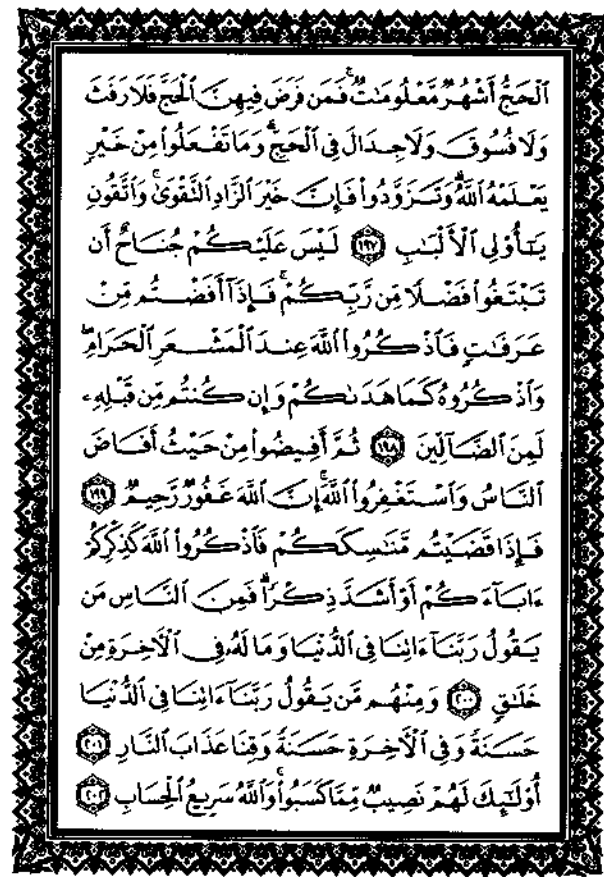 ٱلْحَجُّ أَشْهُرٌ مَّعْلُومَٰتٌ ۚ فَمَن فَرَضَ فِيهِنَّ ٱلْحَجَّ فَلَا رَفَثَ
وَلَا فُسُوقَ وَلَا جِدَالَ فِى ٱلْحَجِّ ۗ وَمَا تَفْعَلُوا۟ مِنْ خَيْرٍ
يَعْلَمْهُ ٱللَّهُ ۗ وَتَزَوَّدُوا۟ فَإِنَّ خَيْرَ ٱلزَّادِ ٱلتَّقْوَىٰ ۚ وَٱتَّقُونِ
يَٰٓأُو۟لِى ٱلْأَلْبَٰبِ ١٩٧ لَيْسَ عَلَيْكُمْ جُنَاحٌ أَن
تَبْتَغُوا۟ فَضْلًا مِّن رَّبِّكُمْ ۚ فَإِذَآ أَفَضْتُم مِّنْ
عَرَفَٰتٍ فَٱذْكُرُوا۟ ٱللَّهَ عِندَ ٱلْمَشْعَرِ ٱلْحَرَامِ ۖ
وَٱذْكُرُوهُ كَمَا هَدَىٰكُمْ وَإِن كُنتُم مِّن قَبْلِهِۦ
لَمِنَ ٱلضَّآلِّينَ ١٩٨ ثُمَّ أَفِيضُوا۟ مِنْ حَيْثُ أَفَاضَ
ٱلنَّاسُ وَٱسْتَغْفِرُوا۟ ٱللَّهَ ۚ إِنَّ ٱللَّهَ غَفُورٌ رَّحِيمٌ ١٩٩
فَإِذَا قَضَيْتُم مَّنَٰسِكَكُمْ فَٱذْكُرُوا۟ ٱللَّهَ كَذِكْرِكُمْ
ءَابَآءَكُمْ أَوْ أَشَدَّ ذِكْرًا ۗ فَمِنَ ٱلنَّاسِ مَن
يَقُولُ رَبَّنَآ ءَاتِنَا فِى ٱلدُّنْيَا وَمَا لَهُۥ فِى ٱلْءَاخِرَةِ مِنْ
خَلَٰقٍ ٢٠٠ وَمِنْهُم مَّن يَقُولُ رَبَّنَآ ءَاتِنَا فِى ٱلدُّنْيَا
حَسَنَةً وَفِى ٱلْءَاخِرَةِ حَسَنَةً وَقِنَا عَذَابَ ٱلنَّارِ ٢٠١
أُو۟لَٰٓئِكَ لَهُمْ نَصِيبٌ مِّمَّا كَسَبُوا۟ ۚ وَٱللَّهُ سَرِيعُ ٱلْحِسَابِ ٢٠٢